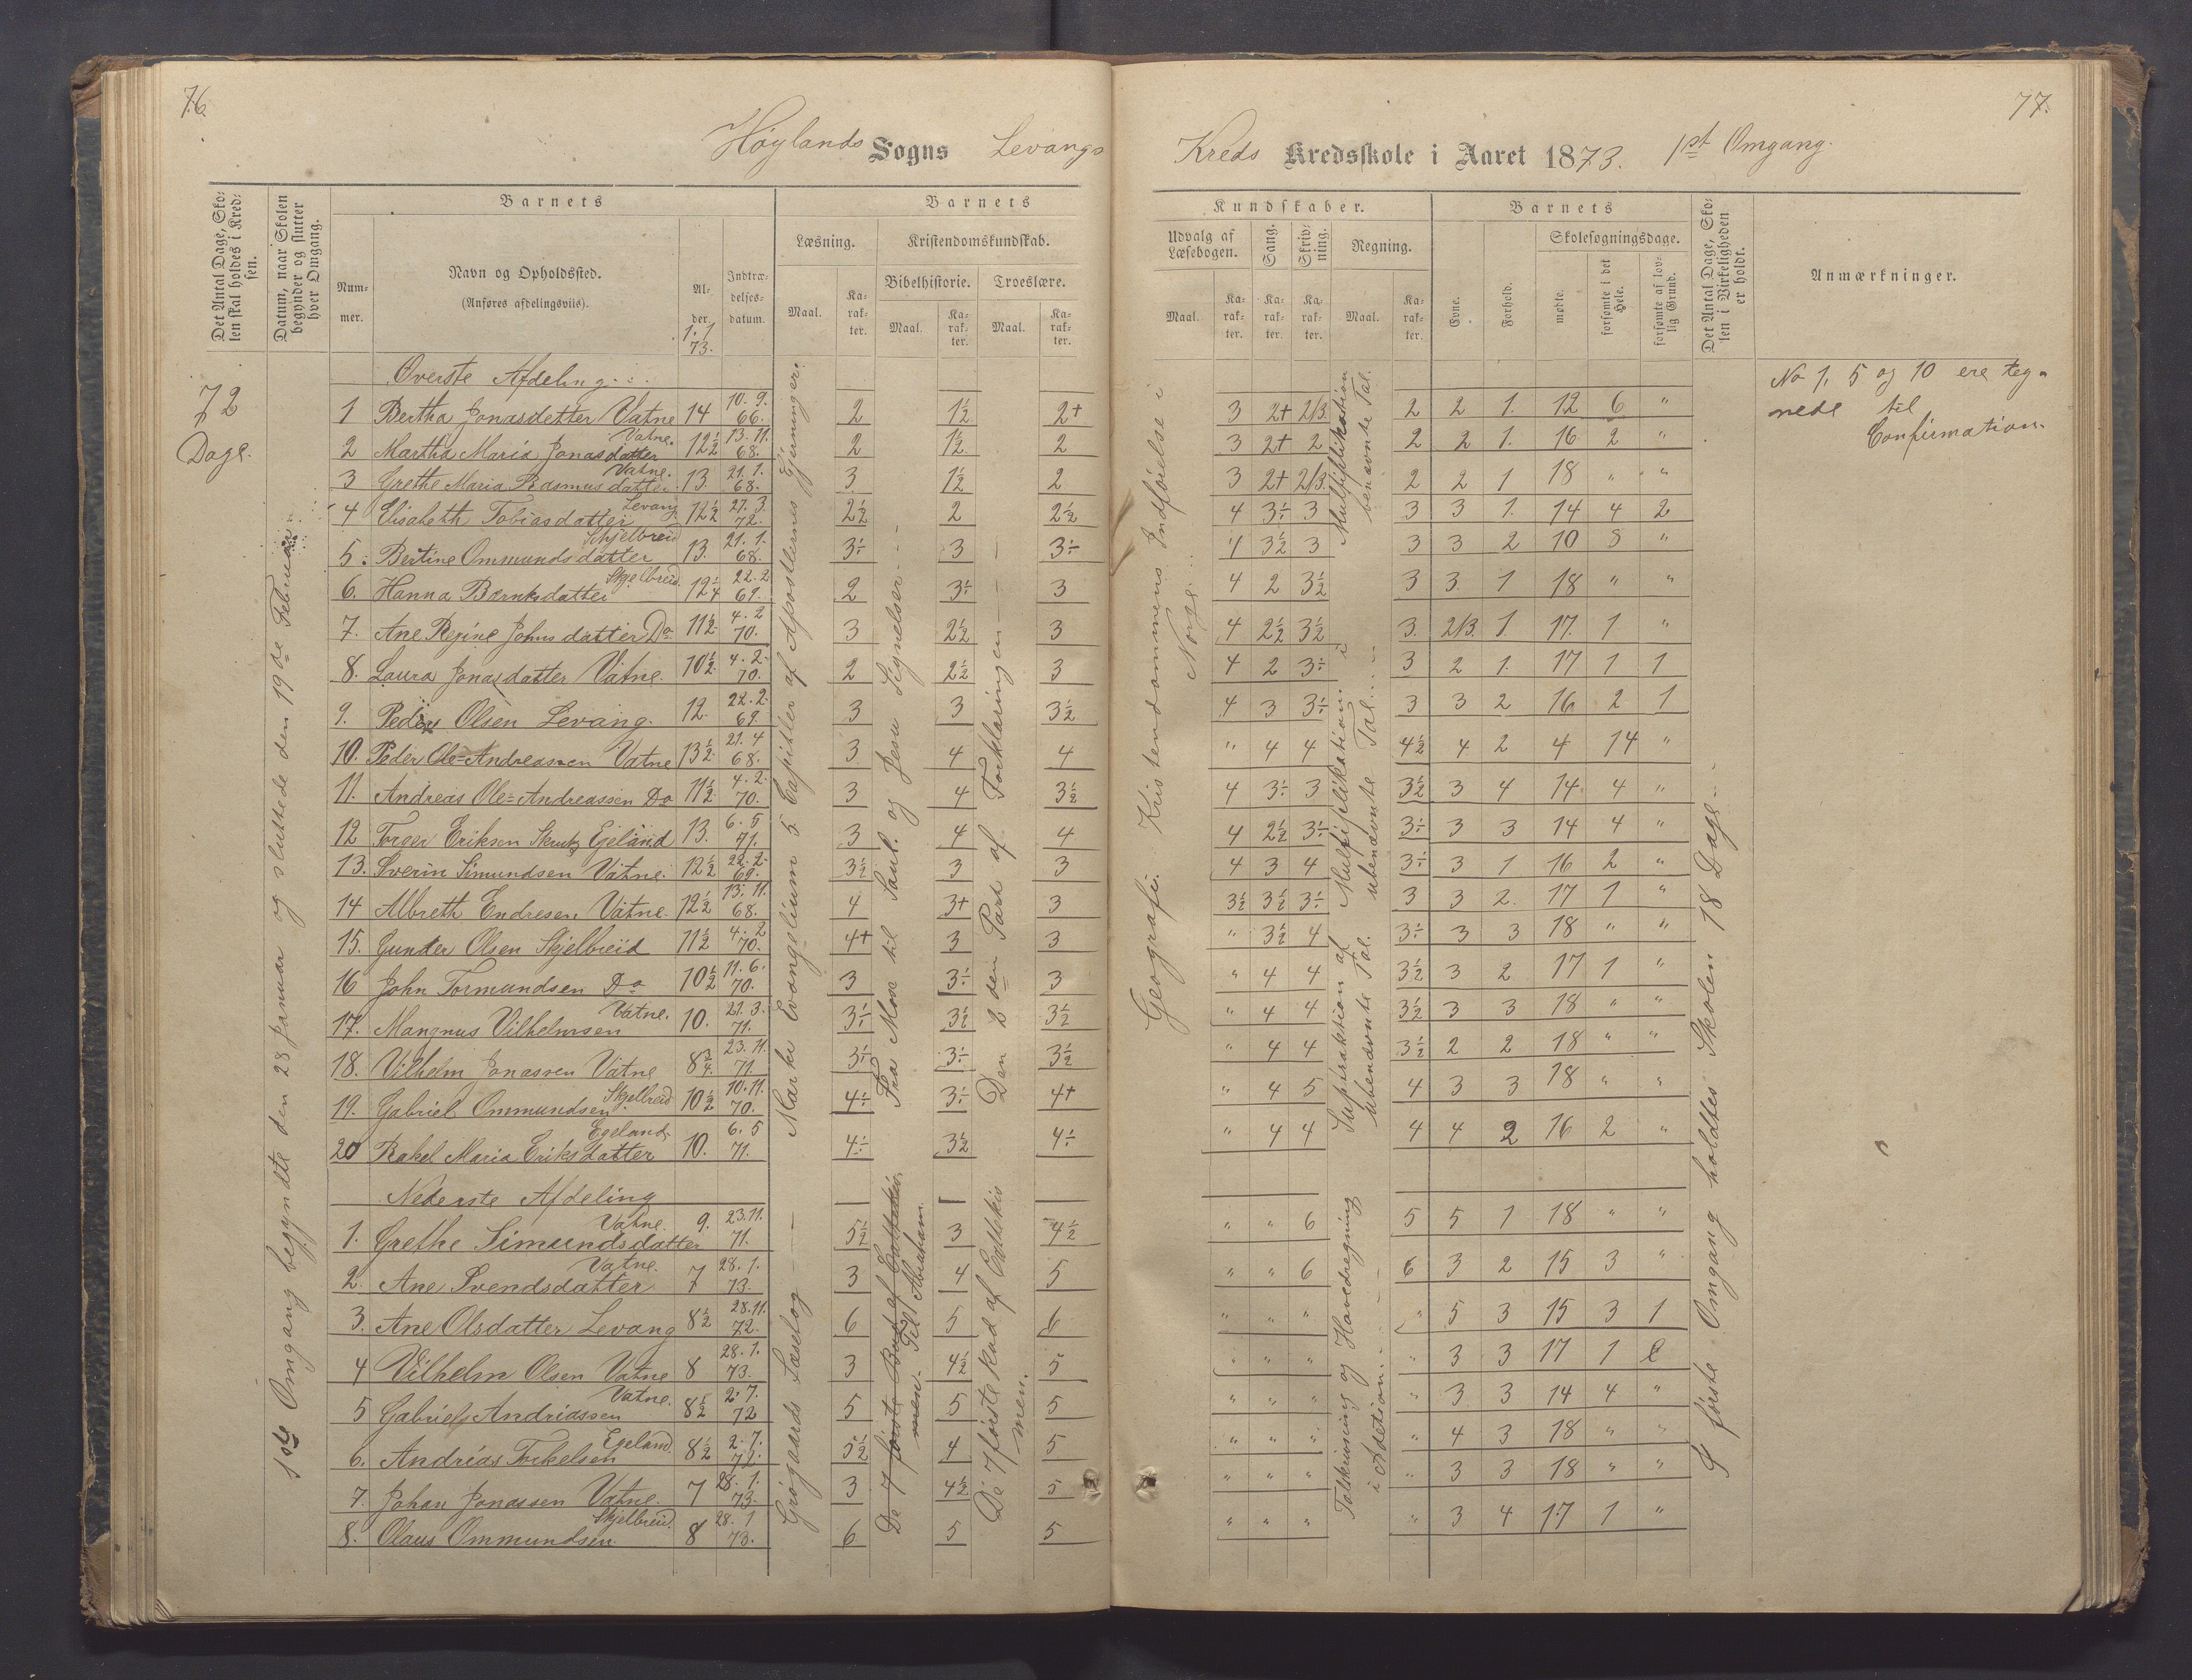 76.
77.
Høylands Sogns Levangs Kreds Kredsskole i Aaret 1873. 1st Omgang.
Det Antal Dage, Skolen skal holdes i Kredsen.
Datum, naar Skolen begynder og slutter hver Omgang.
Barnets
Nummer.
Navn og Opholdssted.
(Anføres afdelingsviis).
Alder.
1.1 73.
Indtrædelses-datum.
Barnets
Læsning.
Maal.
Karakter.
Kristendomskundskab.
Bibelhistorie.
Maal.
Karakter.
Troeslære.
Maal.
Karakter.
Kundskaber.
Udvalg af Læsebogen.
Maal.
Karakter.
Sang.
Karakter.
Skrivning.
Karakter.
Regning.
Maal.
Karakter.
Barnets
Evne.
Forhold.
Skolesøgningsdage.
mødte.
forsømte i det Hele.
forsømte af lovlig Grund.
Det Antal Dage, Skolen i Virkeligheden er holdt.
Anmærkninger.
72 Dage.
1ste Omgang begyndte den 28 Januar og sluttede den 19de Februar.
Øverste Afdeling.
1 Bertha Jonasdatter Vatne 14 10.9. 66. 2 1½ 2+ 3 2+ 2/3. 2 2 1. 12 6 "
2 Martha Maria Jonasdatter Vatne. 12½ 13.11. 68. 2 1½ 2 3 2+ 2 2 2 1. 16 2 "
3 Grethe Maria Rasmusdatter Vatne. 13. 21.1. 68. 3 1½ 2 3 2+ 2/3. 2 2 1 18 " "
4 Elisabeth Tobiasdatter Levang 12½ 27.3. 72. 2½ 2 2½ 4 3÷ 3 3 3 1. 14 4 2
5. Bertine Ommundsdatter Skjelbreid 13. 21.1. 68. 3÷ 3 3÷ 4 3½ 3 3 3 2 10 8 "
6. Hanna Bernksdatter Skjelbreid. 12¼ 22.2 69. 2 3÷ 3 4 2 3½ 3 3. 1 18 " "
7. Ane Regine Johnsdatter Do 11½ 4.2 70. 3 2½ 3 4 2½ 3½ 3. 2/3. 1. 17. 1 "
8. Laura Jonasdatter Vatne. 10½ 4.2. 70. 2 2½ 3 4 2 3÷ 3 2 1. 17 1 1
9. Peder Olsen Levang. 12. 22.2. 69. 3 3 3½ 4 3 3÷ 3 3 2 16 2 1
10. Peder Ole-Andreassen Vatne 13½ 21.4 68. 3 4 4 " 4 4 4½ 4 2 4 14 "
11. Andreas Ole=Andreassen Do 11½ 4.2. 70. 3 4 3½ 4 3÷ 3 3½ 3 4 14 4 "
12 Torger Eriksen Egeland 13. 6.5 71. 3 4 4 4 2½ 3÷ 3÷ 3 3 14 4 "
13. Sverin Simundsen Vatne. 12½ 22.2. 69. 3½ 3 3 4 3 4 3÷ 3 1 16 2 "
14 Albreth Endresen Vatne. 12½ 13.11. 68. 4 3+ 3 3½ 3½ 3÷ 3 3 2. 17 1 "
15. Gunder Olsen Skjelbreid 11½ 4.2 70. 4+ 3 3 " 3½ 4 3÷ 3 3 18 " "
16 John Tormundsen Do 10½ 11.6. 70. 3 3÷ 3 " 4 4 3½ 3 2 17 1 "
17. Mangnus Vilhelmsen Vatne. 10. 21.3. 71. 3÷ 3½ 3½ " 4 4 3½ 3 3 18 " "
18. Vilhelm Jonassen Vatne 8¾. 23.11. 71. 3÷ 3÷ 3½ " 4 4 3½ 2 2 18 " "
19. Gabriel Ommundsen Skjelbreid 10½ 10.11. 70. 4÷ 3÷ 4+ " 4 5 4 3 3 18 " "
20 Rakel Maria Eriksdatter Egeland. 10. 6.5 71. 4÷ 3½ 4÷ " 4 4 4 4 2 16 2 "
Nederste Afdeling
1. Grethe Simundsdatter Vatne. 9. 23.11. 71. 5½ 3 4½ " " 6 5 5 1 18 " "
2. Ane Svendsdatter Vatne. 7 28.1. 73. 3 4 5 " " 6 6 3 2 15 3 "
3. Ane Olsdatter Levang 8½ 28.11. 72. 6 5 6 " " " " 5 3 15 3 1
4 Vilhelm Olsen Vatne 8 28.1. 73. 3 4½ 5 " " " " 3 3 17 1
5 Gabriel Andriassen Vatne. 8½ 2.7. 72 5 5 5 " " " " 3 3 14 4 "
6. Andrias Torkelsen Egeland 8½ 2.7. 72. 5½ 4 5 " " " " 4 3 18 " "
7. Johan Jonassen Vatne. 7 28.1. 73. 3 4½ 5 " " " " 3 3 18 " "
8. Olaus Ommundsen Skjelbreid. 8 28.1 73. 6 5 5 " " " " 3 4 17 1 "
Marki Evangelium 5 Capitler af Apostlernes Gjerninger.
Grøgaards Læsebog
Fra Mose til Saul. og Jesu Lignelser
De 7 første Bud af
Til Abraham.
Den 2den Part af Forklaringen
De 7 første Bud af
Geografi. Kristendommens Indførelse i Norge.
Multiplikation i benævnte Tal.
Multiplikation i ubenævnte Tal.
Suptraktion af ubenævnte Tal.
Talskrivning og Hovedregning i Adetion.
I første Omgang holdtes Skolen 18 Dage.
No 1, 5 og 10 ere teg-
nede til
Confirmation.